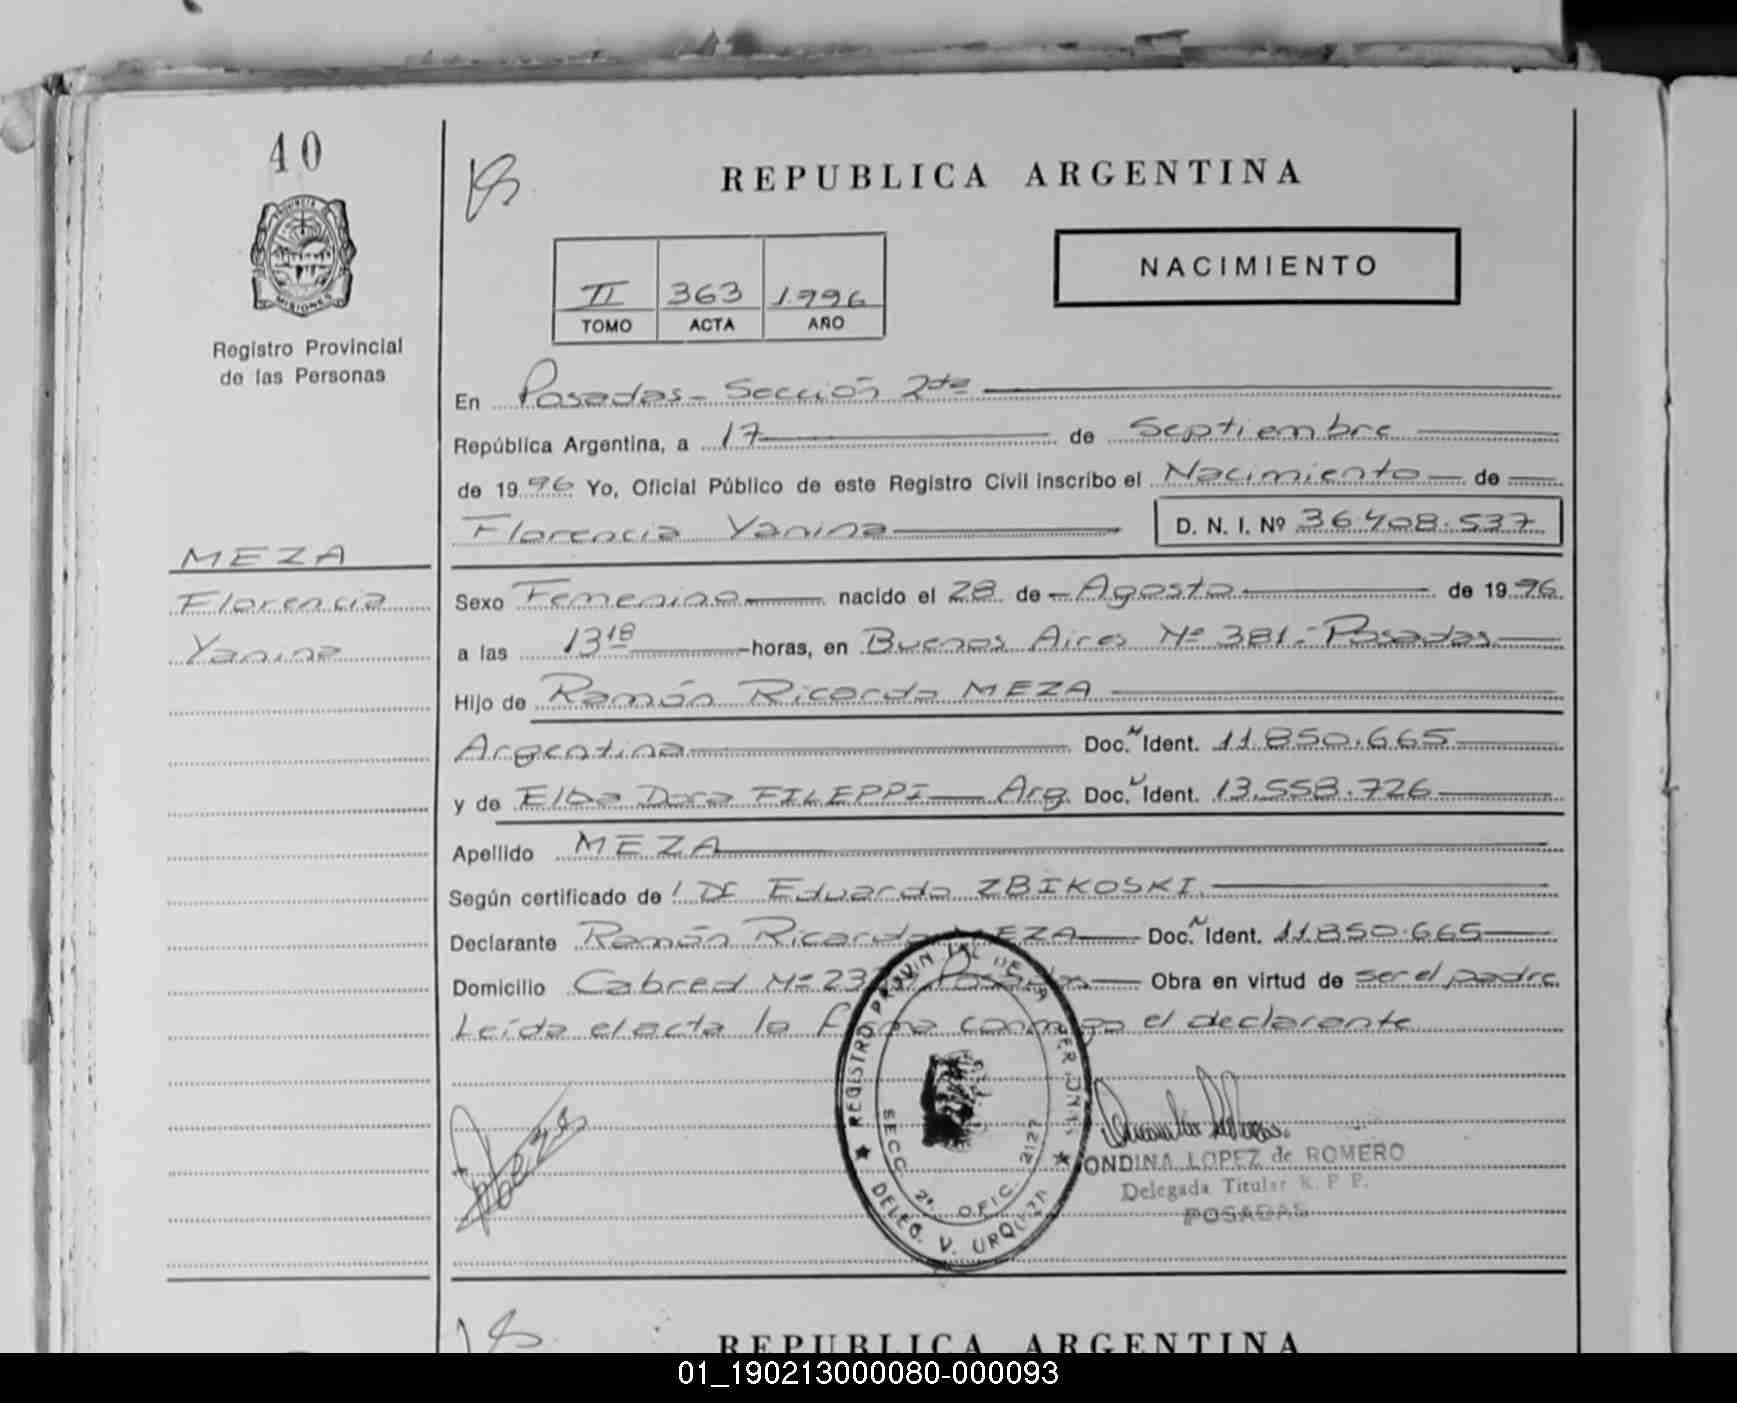 40
PROVINCIA
MISIONES
Registro Provincial
de las Personas
REPUBLICA ARGENTINA
NACIMIENTO
II 363 1996
TOMO ACTA AÑO
En Posadas - Sección 2da
República Argentina, a 17 de Septiembre
de 1996 Yo, Oficial Público de este Registro Civil inscribo el Nacimiento de
Florencia Yanina D. N. I. Nº 36.408.537
MEZA
Florencia
Yanina
Sexo Femenino nacido el 28 de Agosto de 1996
a las 13 18 horas, en Buenos Aires Nº 381.- Posadas
Hijo de Ramón Ricardo MEZA
Argentina Doc. Ident. 11.850.665
y de Elba Dora FILEPPI Arg. Doc. Ident. 13.558.726
Apellido MEZA
Según certificado de Dr Eduardo ZBIKOSKI
Declarante Ramón Ricardo MEZA Doc. Ident. 11.850.665
Domicilio Cabred Nº 23 Posadas Obra en virtud de ser el padre
Leída el acta la firma conmigo el declarante
REGISTRO PROVINCIAL DE LAS PERSONAS
SECC. 2ª OFIC. 2127
DELEG. V. URQUIZA
ONDINA LOPEZ de ROMERO
Delegada Titular R. P. P.
POSADAS
REPUBLICA ARGENTINA
01_190213000080-000093